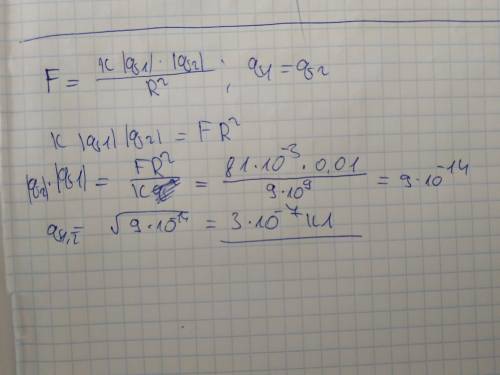 F = К |q1| · |q2| / R² ; q1 = q2
К |q1| |q2| = FR²
|q2| · |q1| = FR² / К = 81·10⁻³ · 0,01 / 9·10⁹ = 9·10⁻¹⁴
q1,2 = √9·10⁻¹⁴ = 3·10⁻⁷ Кл